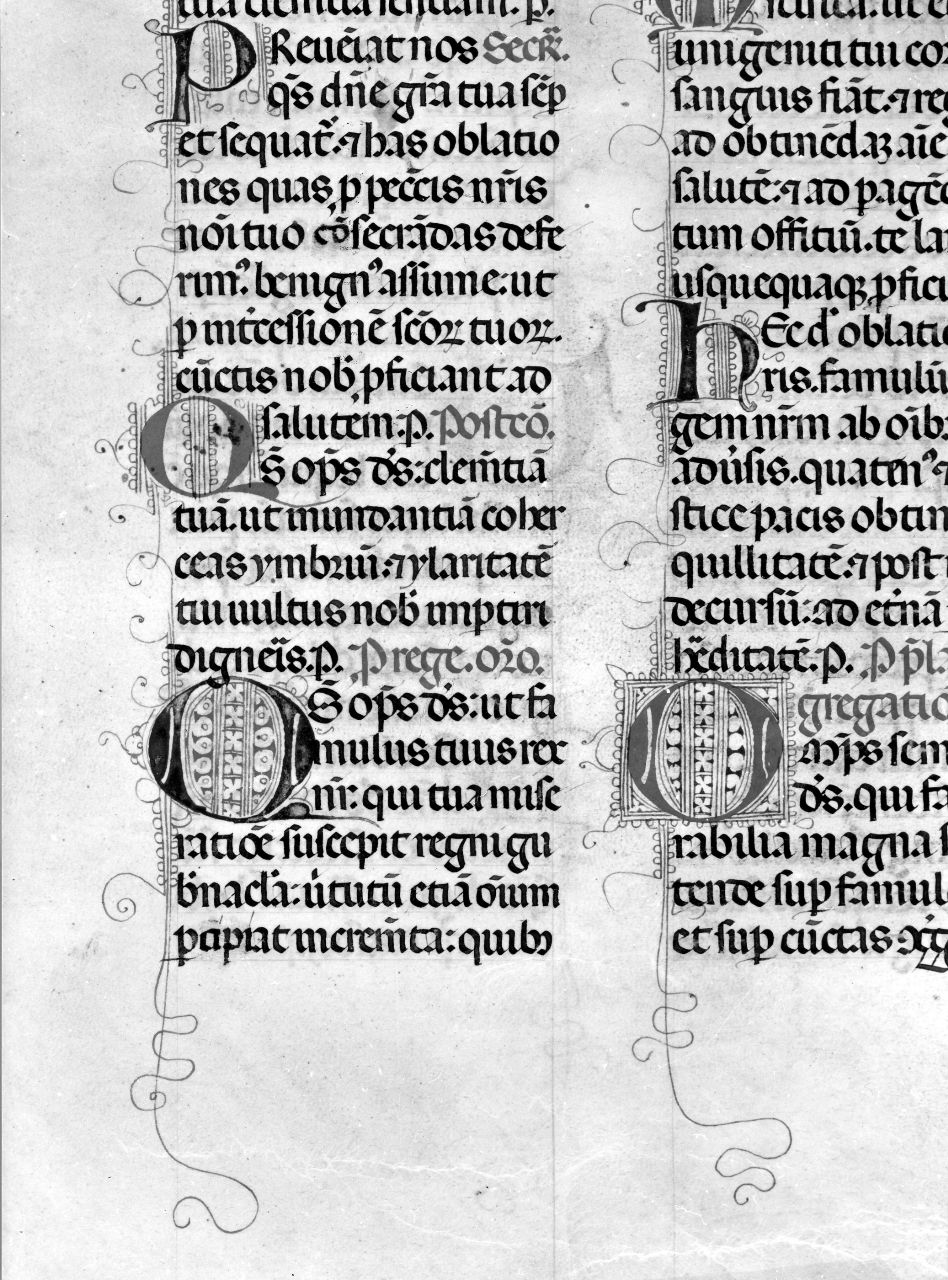 tua clementia sentiam. p̄.
PReueīat nos Secr̄.
q̄s dn̄e gr̄a tua sēp
et sequat̄.⁊ has oblatio
nes quas ꝓ pecc̄is nr̄is
nōi tuo cōsecrādas defe
rimꝰ. benignꝰ assume: ut
p int̄cessionē sc̄oꝝ tuoꝝ.
cūctis nob̄ ꝓficiant ad
salutem. P̄. Postcō.
QS̄ op̄s d̄s: clem̄tiā
tuā. ut inundantiā coher
ceas ymbriū:⁊ ylaritatē
tui uultus nob̄ imptiri
digneīs. P̄. P rege. or̄o.
QS̄ op̄s d̄s: ut fa
mulus tuus rex
nr̄: qui tua mise
ratiōe suscepit regni gu
b̄nacl̄a: u̍tutū etiā oīum
ꝑcipiat increm̄ta: quibꝫ
unigeniti tui
sanguis fiāt.⁊
ad obtinēdaꝫ aīe
salutē:⁊ ad ꝑagē
tum offitiū. te
usquequaqꝫ ꝓfici
HEc d̄ oblatio
ris. famulū
gem nr̄m ab oīb
adu̍sis. quatenꝰ
stice pacis obtin
quillitatē.⁊ post
decursū: ad et̄nā
h̄editatē. P̄. P p̄l
gregatio
OMp̄s sem
d̄s. qui fa
rabilia magna
tende suꝑ famul
et suꝑ cūctas ꝯḡ